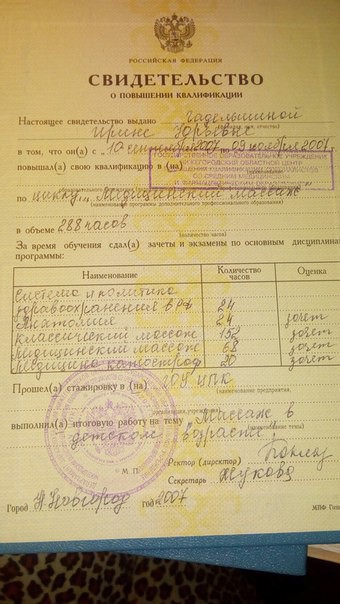 РОССИЙСКАЯ ФЕДЕРАЦИЯ
СВИДЕТЕЛЬСТВО
О ПОВЫШЕНИИ КВАЛИФИКАЦИИ
Настоящее свидетельство выдано
Ирине Юрьевне
в том, что он(а) с 10 сентября 2007 09 ноября 2007
ГОСУДАРСТВЕННОЕ ОБРАЗОВАТЕЛЬНОЕ УЧРЕЖДЕНИЕ
НИЖЕГОРОДСКИЙ ОБЛАСТНОЙ ЦЕНТР
повышал(а) свою квалификацию в (на)
по циклу „Медицинский массаж"
(наименование программы дополнительного профессионального образования)
в объеме 288 часов
(количество часов)
За время обучения сдал(а) зачеты и экзамены по основным дисциплинам
программы:
Наименование Количество часов Оценка
Система и политика
здравоохранения в РФ 24
Анатомия 24 зачет
Классический массаж 152 зачет
Медицинский массаж 68 зачет
Медицина катастроф 20 зачет
Прошел(а) стажировку в (на) ЦПК
(наименование предприятия,
выполнил(а) итоговую работу на тему Массаж в
детском возрасте
М. П.
Ректор (директор)
Секретарь Жукова
Город Н.Новгород год 2007
МПФ